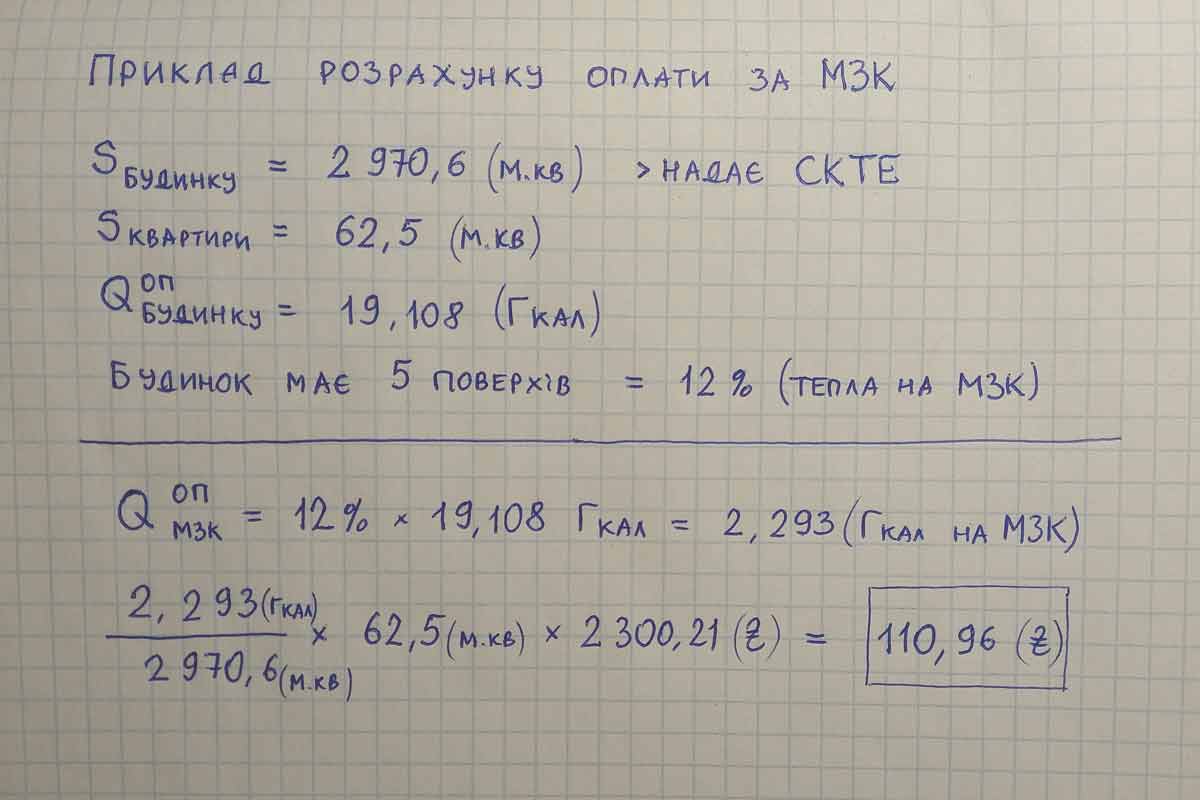 ПРИКЛАД РОЗРАХУНКУ ОПЛАТИ ЗА МЗК
S БУДИНКУ = 2 970,6 (М.КВ) > НАДАЄ СКТЕ
S КВАРТИРИ = 62,5 (М.КВ)
Q ОП БУДИНКУ = 19,108 (ГКАЛ)
БУДИНОК МАЄ 5 ПОВЕРХІВ = 12% (ТЕПЛА НА МЗК)
Q ОП МЗК = 12% × 19,108 ГКАЛ = 2,293 (ГКАЛ НА МЗК)
2,293 (ГКАЛ) / 2 970,6 (М.КВ) × 62,5 (М.КВ) × 2 300,21 (₴) = 110,96 (₴)